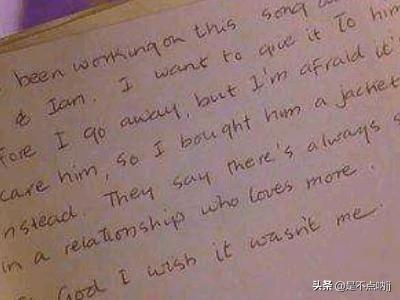 been working on this song
& Ian. I want to give it to him
fore I go away, but I'm afraid it'
care him, so I bought him a jacket
nstead. They say there's always s
in a relationship who loves more.
God I wish it wasn't me.
头条 @是不点呐jj